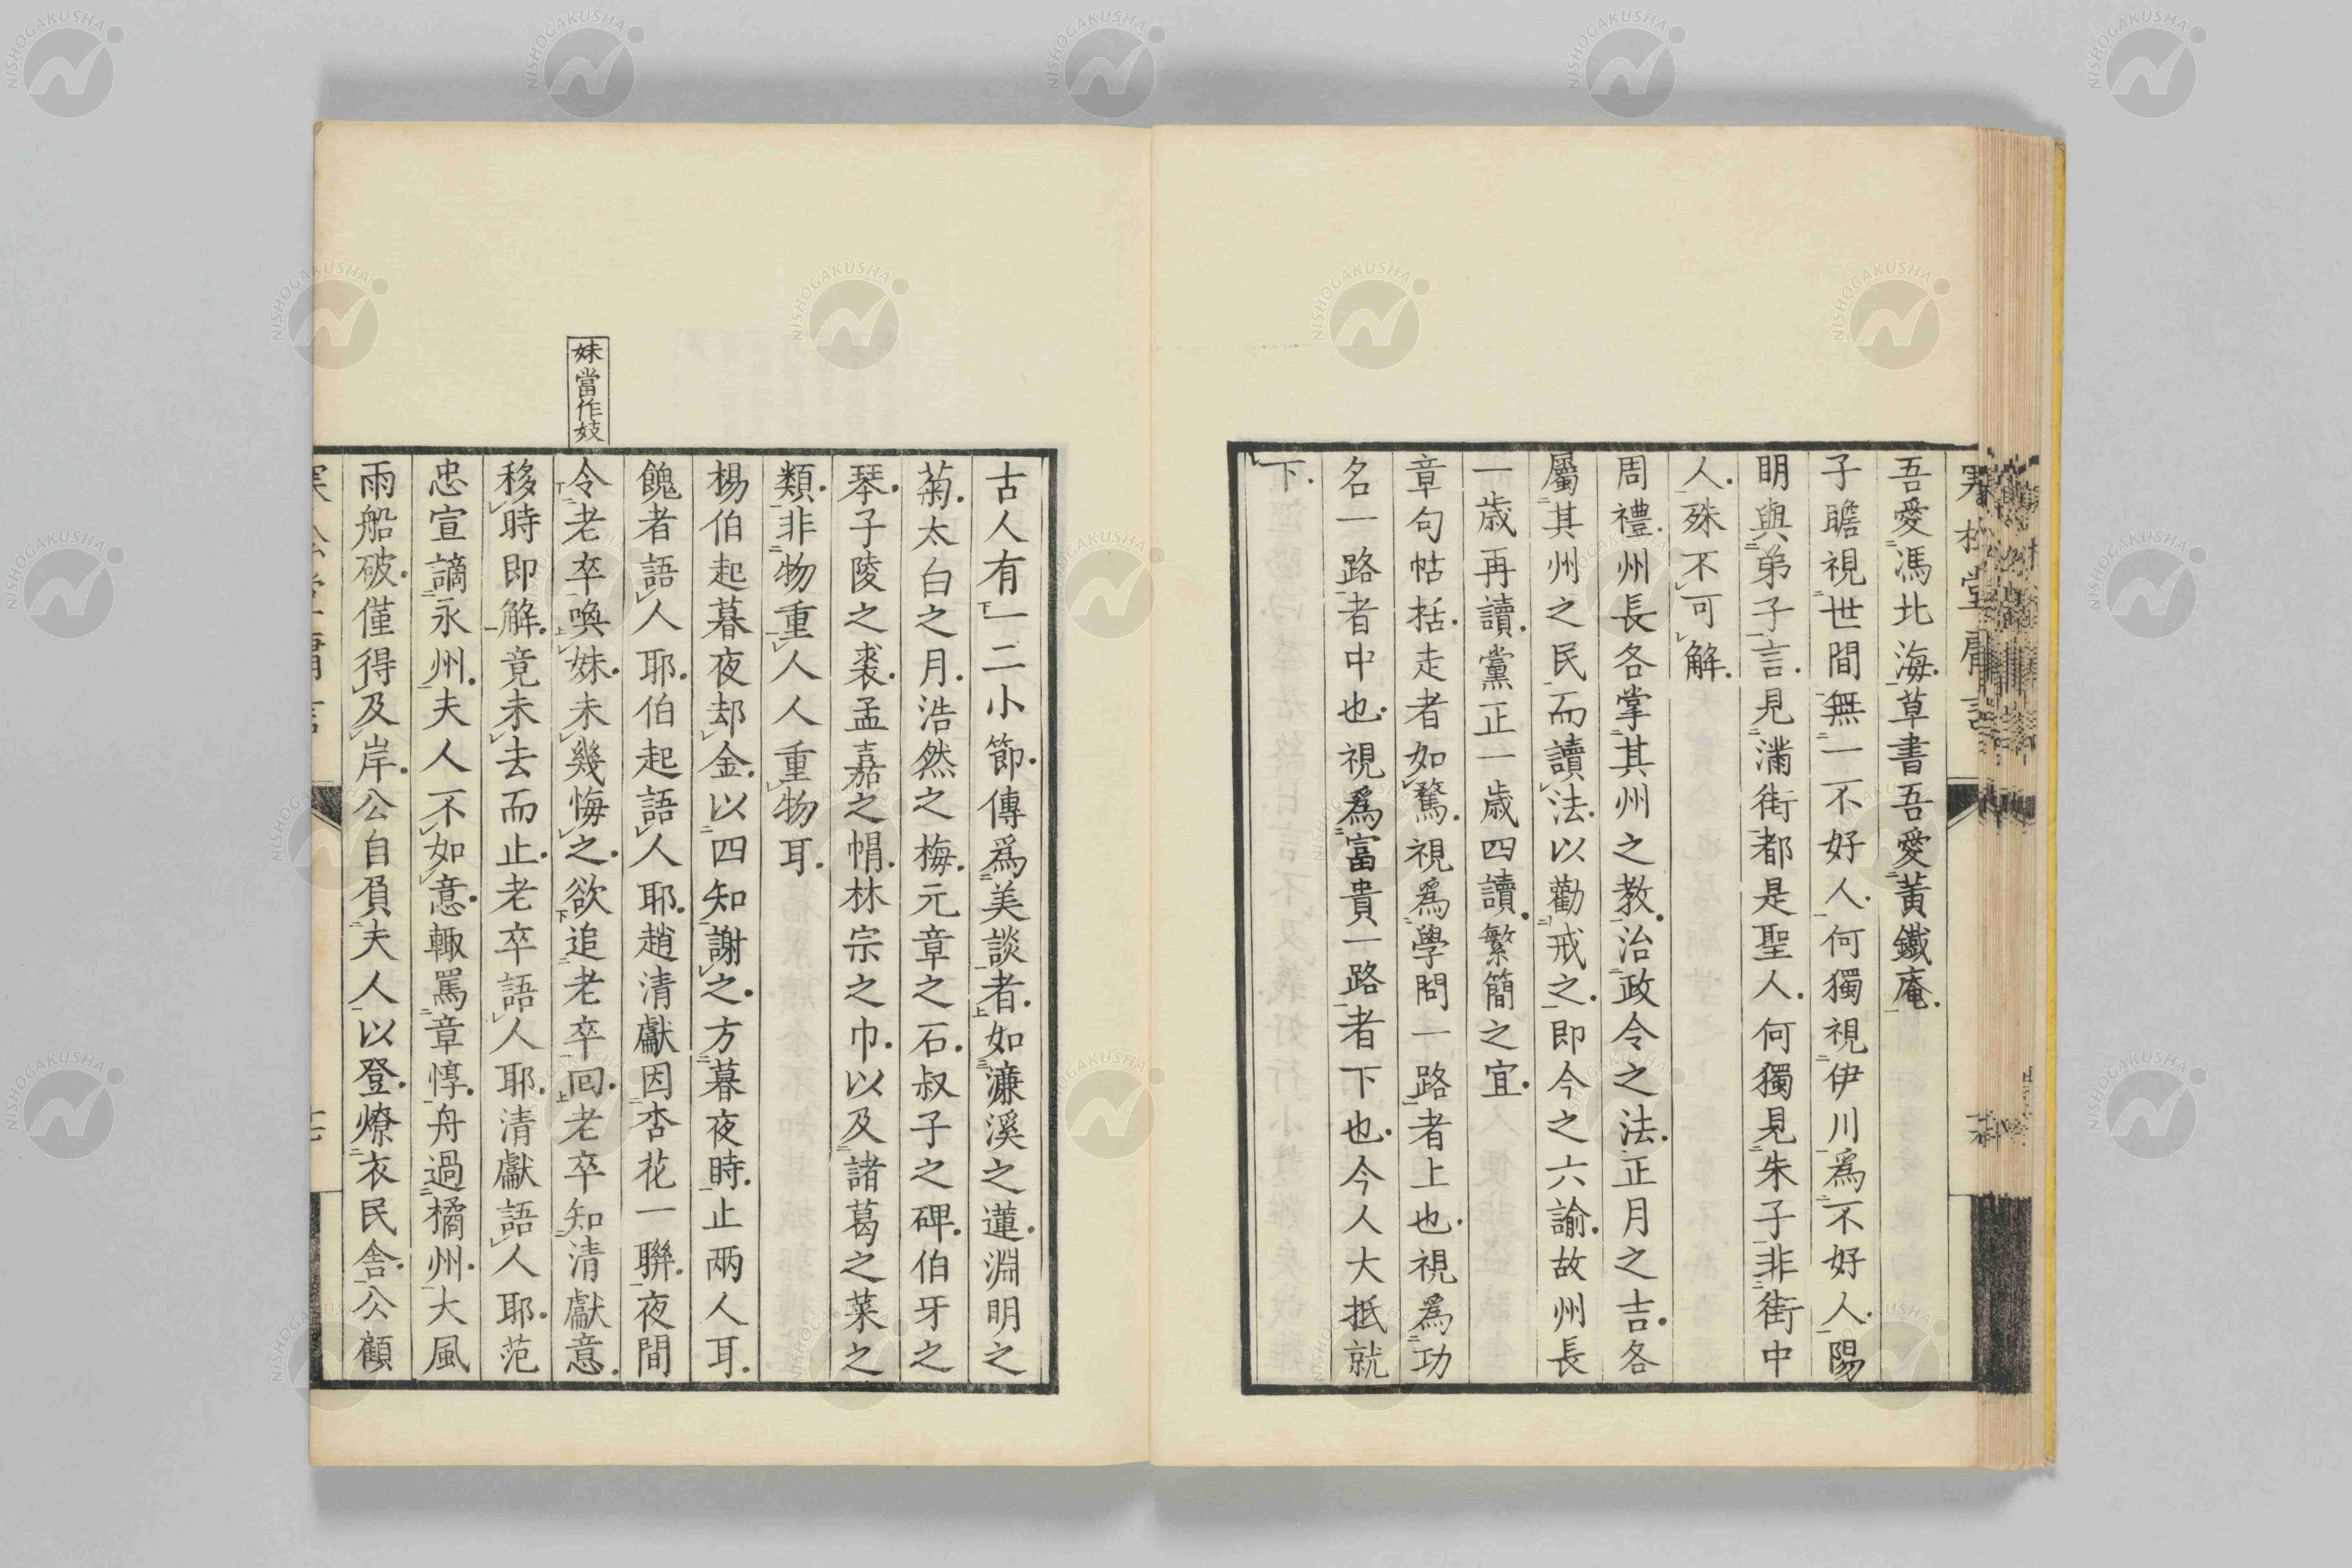 吾愛馮北海草書吾愛黃鐵庵
子瞻視世間無一不好人何獨視伊川爲不好人陽
明與弟子言見滿街都是聖人何獨見朱子非街中
人殊不可解
周禮州長各掌其州之教治政令之法正月之吉各
屬其州之民而讀法以勸戒之即今之六諭故州長
一歲再讀黨正一歲四讀繁簡之宜
章句帖括走者如騖視爲學問一路者上也視爲功
名一路者中也視爲富貴一路者下也今人大抵就
下
古人有一二小節傳爲美談者如濂溪之蓮淵明之
菊太白之月浩然之梅元章之石叔子之碑伯牙之
琴子陵之裘孟嘉之帽林宗之巾以及諸葛之菜之
類非物重人人重物耳
楊伯起暮夜却金以四知謝之方暮夜時止兩人耳
餽者語人耶伯起語人耶趙清獻因杏花一聯夜間
令老卒喚妹未幾悔之欲追老卒回老卒知清獻意
移時即解竟未去而止老卒語人耶清獻語人耶范
忠宣謫永州夫人不如意輙罵章惇舟過橘州大風
雨船破僅得及岸公自負夫人以登燎衣民舍公顧
妹當作妓
NISHOGAKUSHA